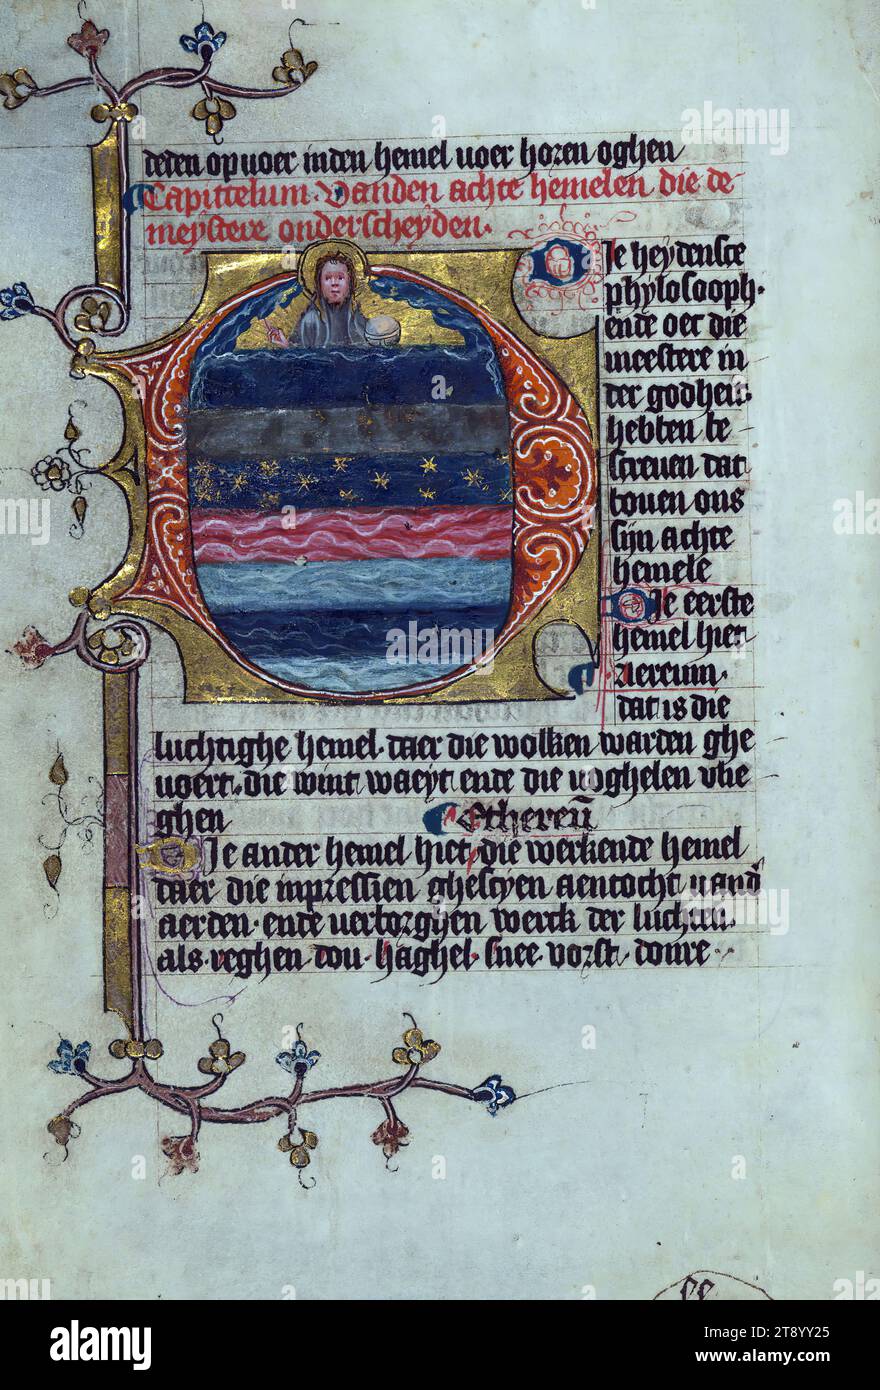 deden op voer inden hemel voer horen oghen
Capittelum. Vanden achte hemelen die de
meystere onderscheyden.
Die heydensce
phylosooph.
ende oec die
meestere in
der godheit.
hebben be
screuen dat
bouen ons
sijn achte
hemele
Die eerste
hemel hiet
aereum.
dat is die
luchtighe hemel. daer die wolken warden ghe
uoert. die wint waeyt ende die voghelen vlie
ghen Ethereum
Die ander hemel hiet die werkende hemel
daer die inpressien ghescyen aentocht vand
aerden. ende verborghen werck der luchten.
als reghen dou. haghel. snee. vorst. donre
alamy
Image ID: 2T8YY25
www.alamy.com